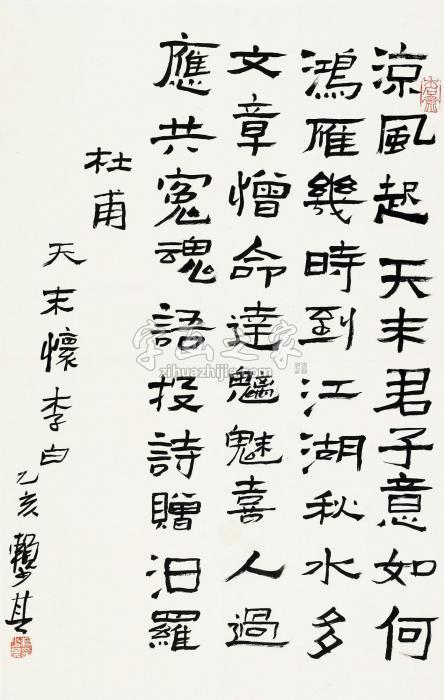 凉風起天末君子意如何
鴻雁幾時到江湖秋水多
文章憎命達魑魅喜人過
應共冤魂語投詩贈汨羅
杜甫
天末懷李白
乙亥賴少其
字画之家
zihuazhijia.com